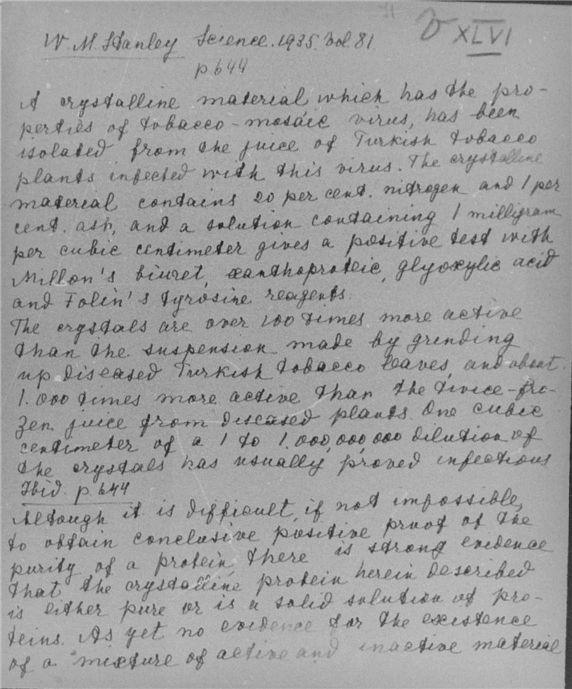 W. M. Stanley Science. 1935. Vol 81.
XLVI
p 644
A crystalline material which has the pro-
perties of tobacco-mosaic virus, has been
isolated from the juice of Turkish tobacco
plants infected with this virus. The crystalline
material contains 20 per cent. nitrogen and 1 per
cent. ash, and a solution containing 1 milligram
per cubic centimeter gives a positive test with
Millon's biuret, xanthoproteic, glyoxylic acid
and Folin's tyrosine reagents.
The crystals are over 100 times more active
than the suspension made by grinding
up diseased Turkish tobacco leaves, and about
1.000 times more active than the twice-fro-
zen juice from diseased plants. One cubic
centimeter of a 1 to 1.000,000,000 dilution of
the crystals has usually proved infectious
Ibid. p. 644
Although it is difficult, if not impossible,
to obtain conclusive positive proof of the
purity of a protein, there is strong evidence
that the crystalline protein herein described
is either pure or is a solid solution of pro-
teins. As yet no evidence for the existence
of a mixture of active and inactive material